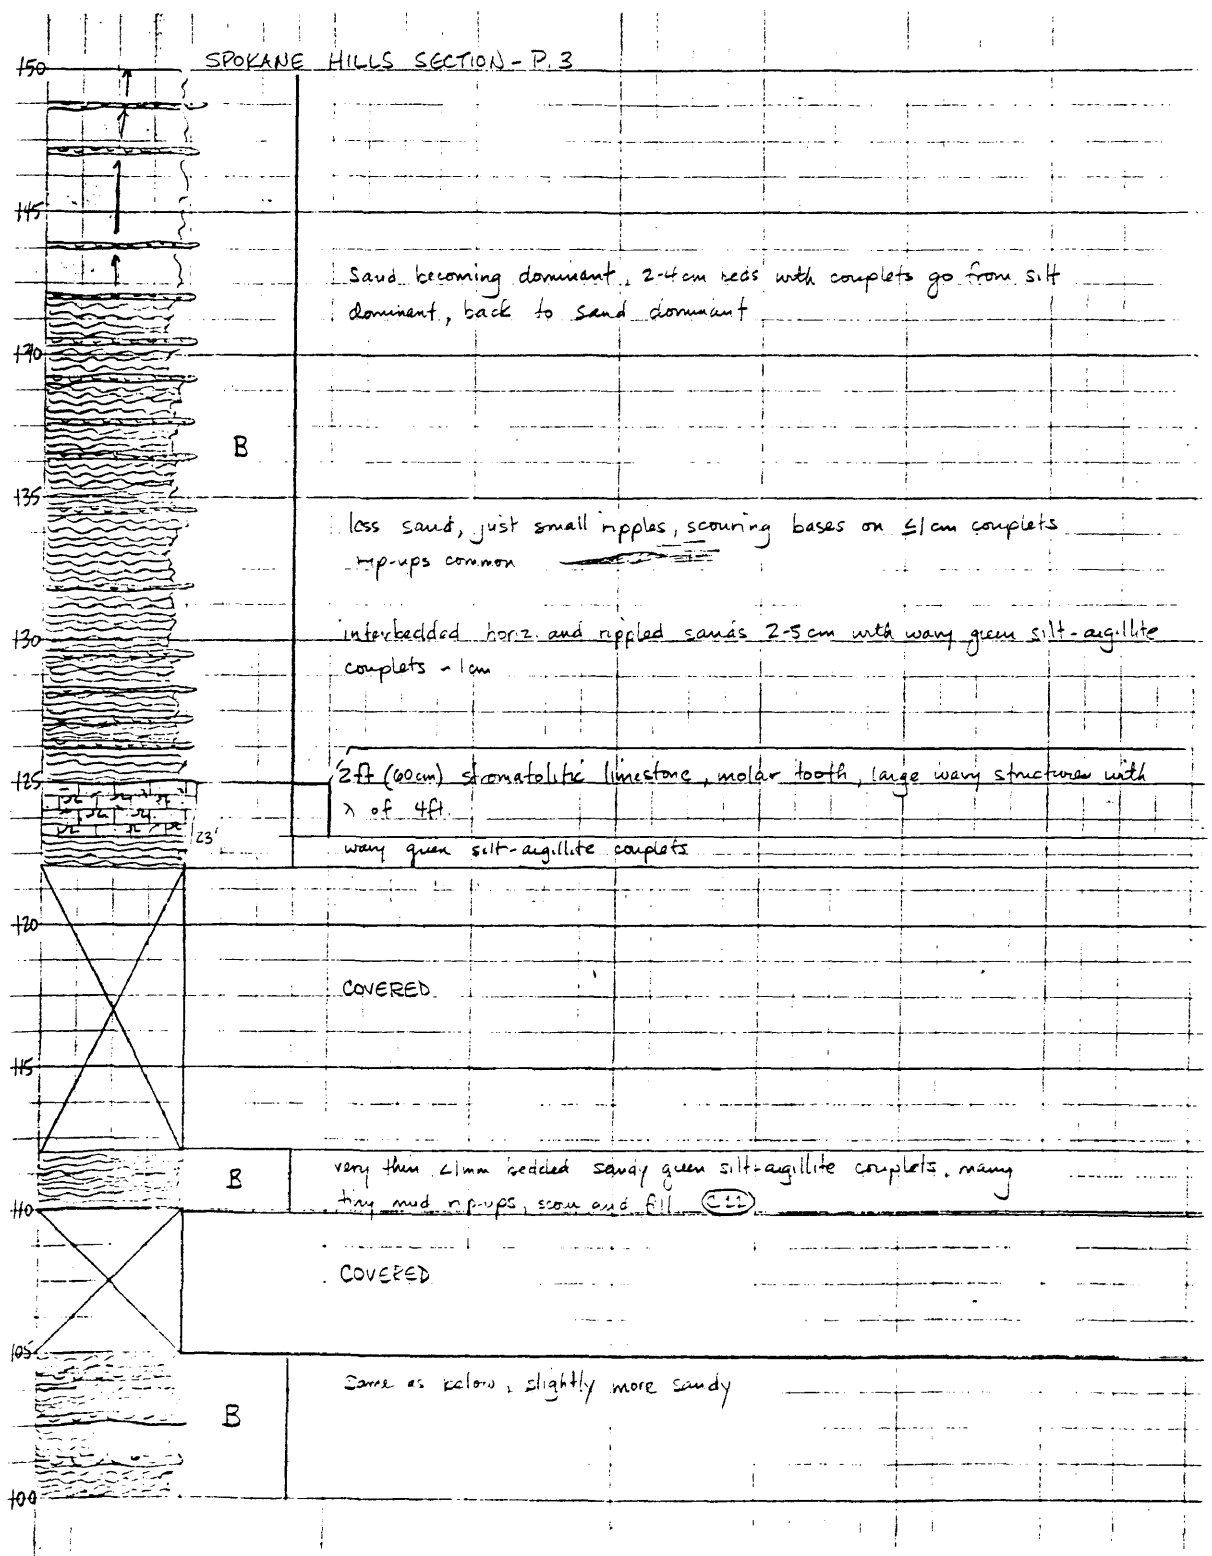 SPOKANE HILLS SECTION - P. 3
150
145
Sand becoming dominant, 2-4 cm beds with couplets go from silt
dominant, back to sand dominant
140
B
135
less sand, just small ripples, scouring bases on ≤1cm couplets
rip-ups common
130
interbedded horiz. and rippled sands 2-5 cm with wavy green silt-argillite
couplets ~ 1cm
125
2ft (60cm) stromatolitic limestone, molar tooth, large wavy structures with
λ of 4ft.
23'
wavy green silt-argillite couplets
120
COVERED
115
very thin <1mm bedded sandy green silt-argillite couplets, many
B
tiny mud rip-ups, scour and fill
110
COVERED
105
Same as below, slightly more sandy
B
100